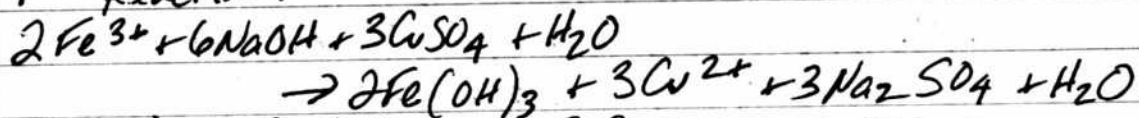 2Fe³⁺ + 6NaOH + 3CuSO₄ + H₂O
→ 2Fe(OH)₃ + 3Cu²⁺ + 3Na₂SO₄ + H₂O